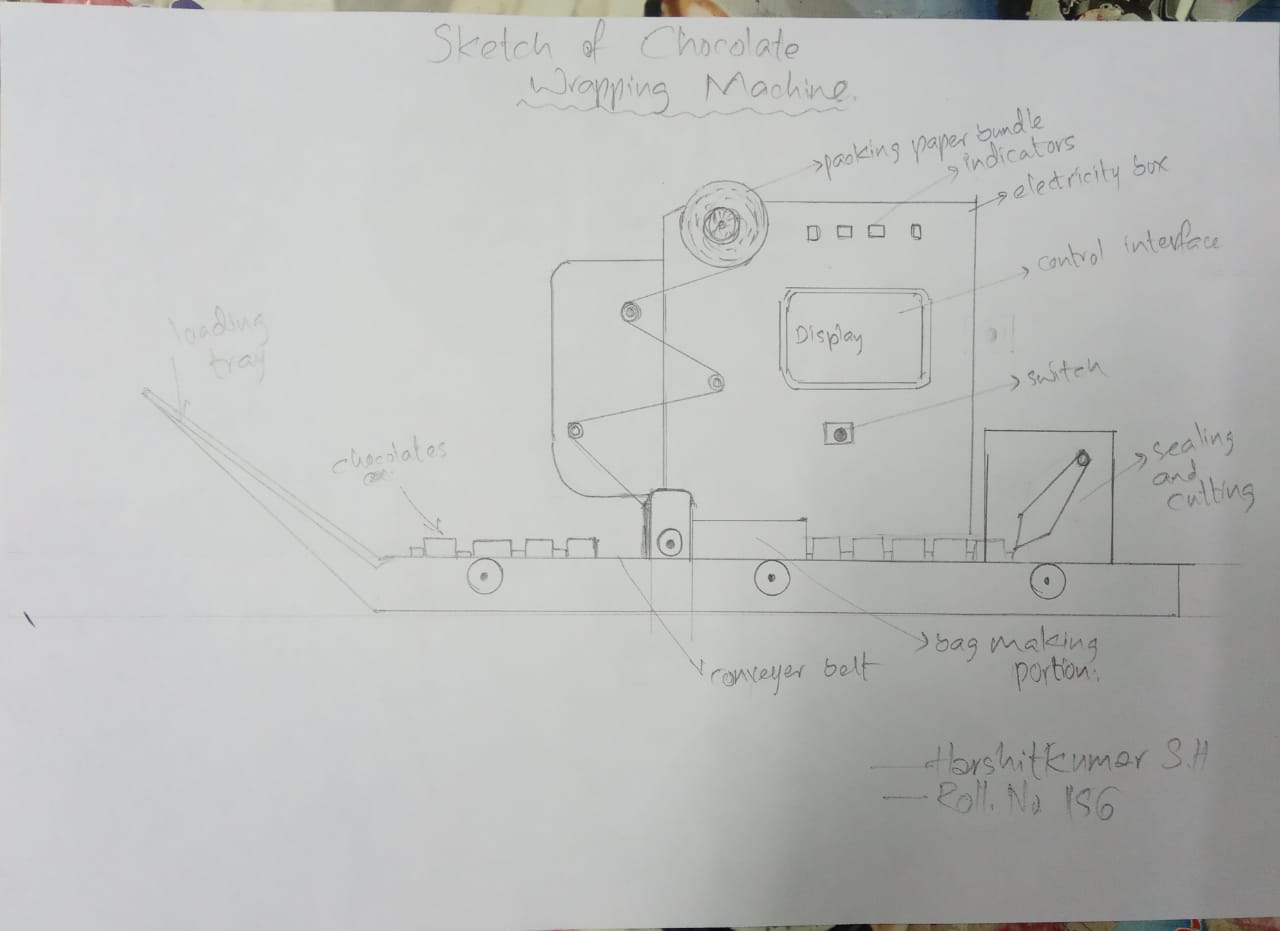 Sketch of Chocolate
Wrapping Machine.
packing paper bundle
indicators
electricity box
control interface
Display
switch
loading
tray
chocolates
sealing
and
cutting
bag making
portion.
conveyer belt
Harshitkumar S.H
Roll. No 156